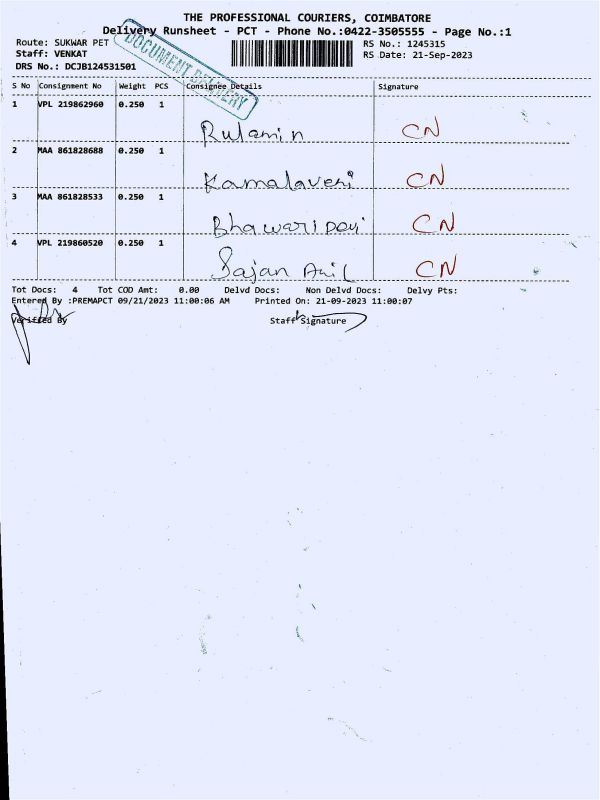 THE PROFESSIONAL COURIERS, COIMBATORE
Delivery Runsheet - PCT - Phone No.:0422-3505555 - Page No.:1
Route: SUKWAR PET RS No.: 1245315
Staff: VENKAT RS Date: 21-Sep-2023
DRS No.: DCJB124531501
DOCUMENT DELIVERY
S No Consignment No Weight PCS Consignee Details Signature
1 VPL 219862960 0.250 1
Rulamin CN
2 MAA 861828688 0.250 1
Kamalaveni CN
3 MAA 861828533 0.250 1
Bhawari Devi CN
4 VPL 219860520 0.250 1
Sajan Anil CN
Tot Docs: 4 Tot COD Amt: 0.00 Delvd Docs: Non Delvd Docs: Delvy Pts:
Entered By :PREMAPCT 09/21/2023 11:00:06 AM Printed On: 21-09-2023 11:00:07
Verified By Staff Signature